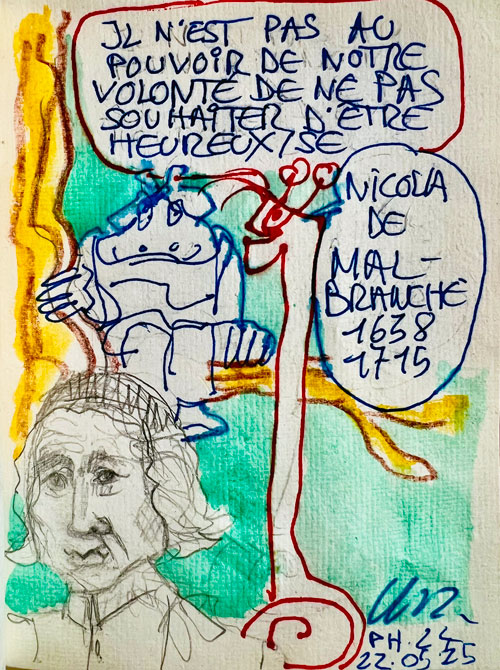 IL N'EST PAS AU
POUVOIR DE NOTRE
VOLONTÉ DE NE PAS
SOUHAITER D'ÊTRE
HEUREUX/SE
NICOLA
DE
MAL-
BRANCHE
1638
1715
PH. 24
22.05.25